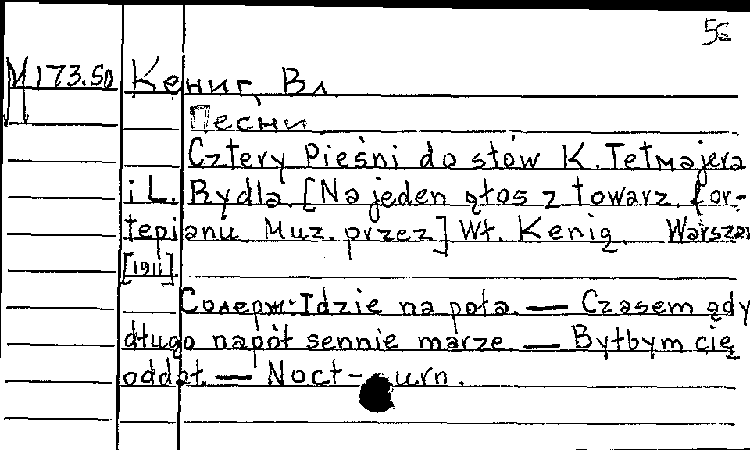 56
М 173.50 Кениг, Вл.
Песни
Cztery Pieśni do słów K. Tetmajera
i L. Rydla. [Na jeden głos z towarz. for-
tepianu. Muz. przez] Wł. Kenig. Warszaw
[1911].
Содерж: Idzie na pola. — Czasem gdy
długo napół sennie marzę. — Byłbym cię
oddał. — Noct-urn.